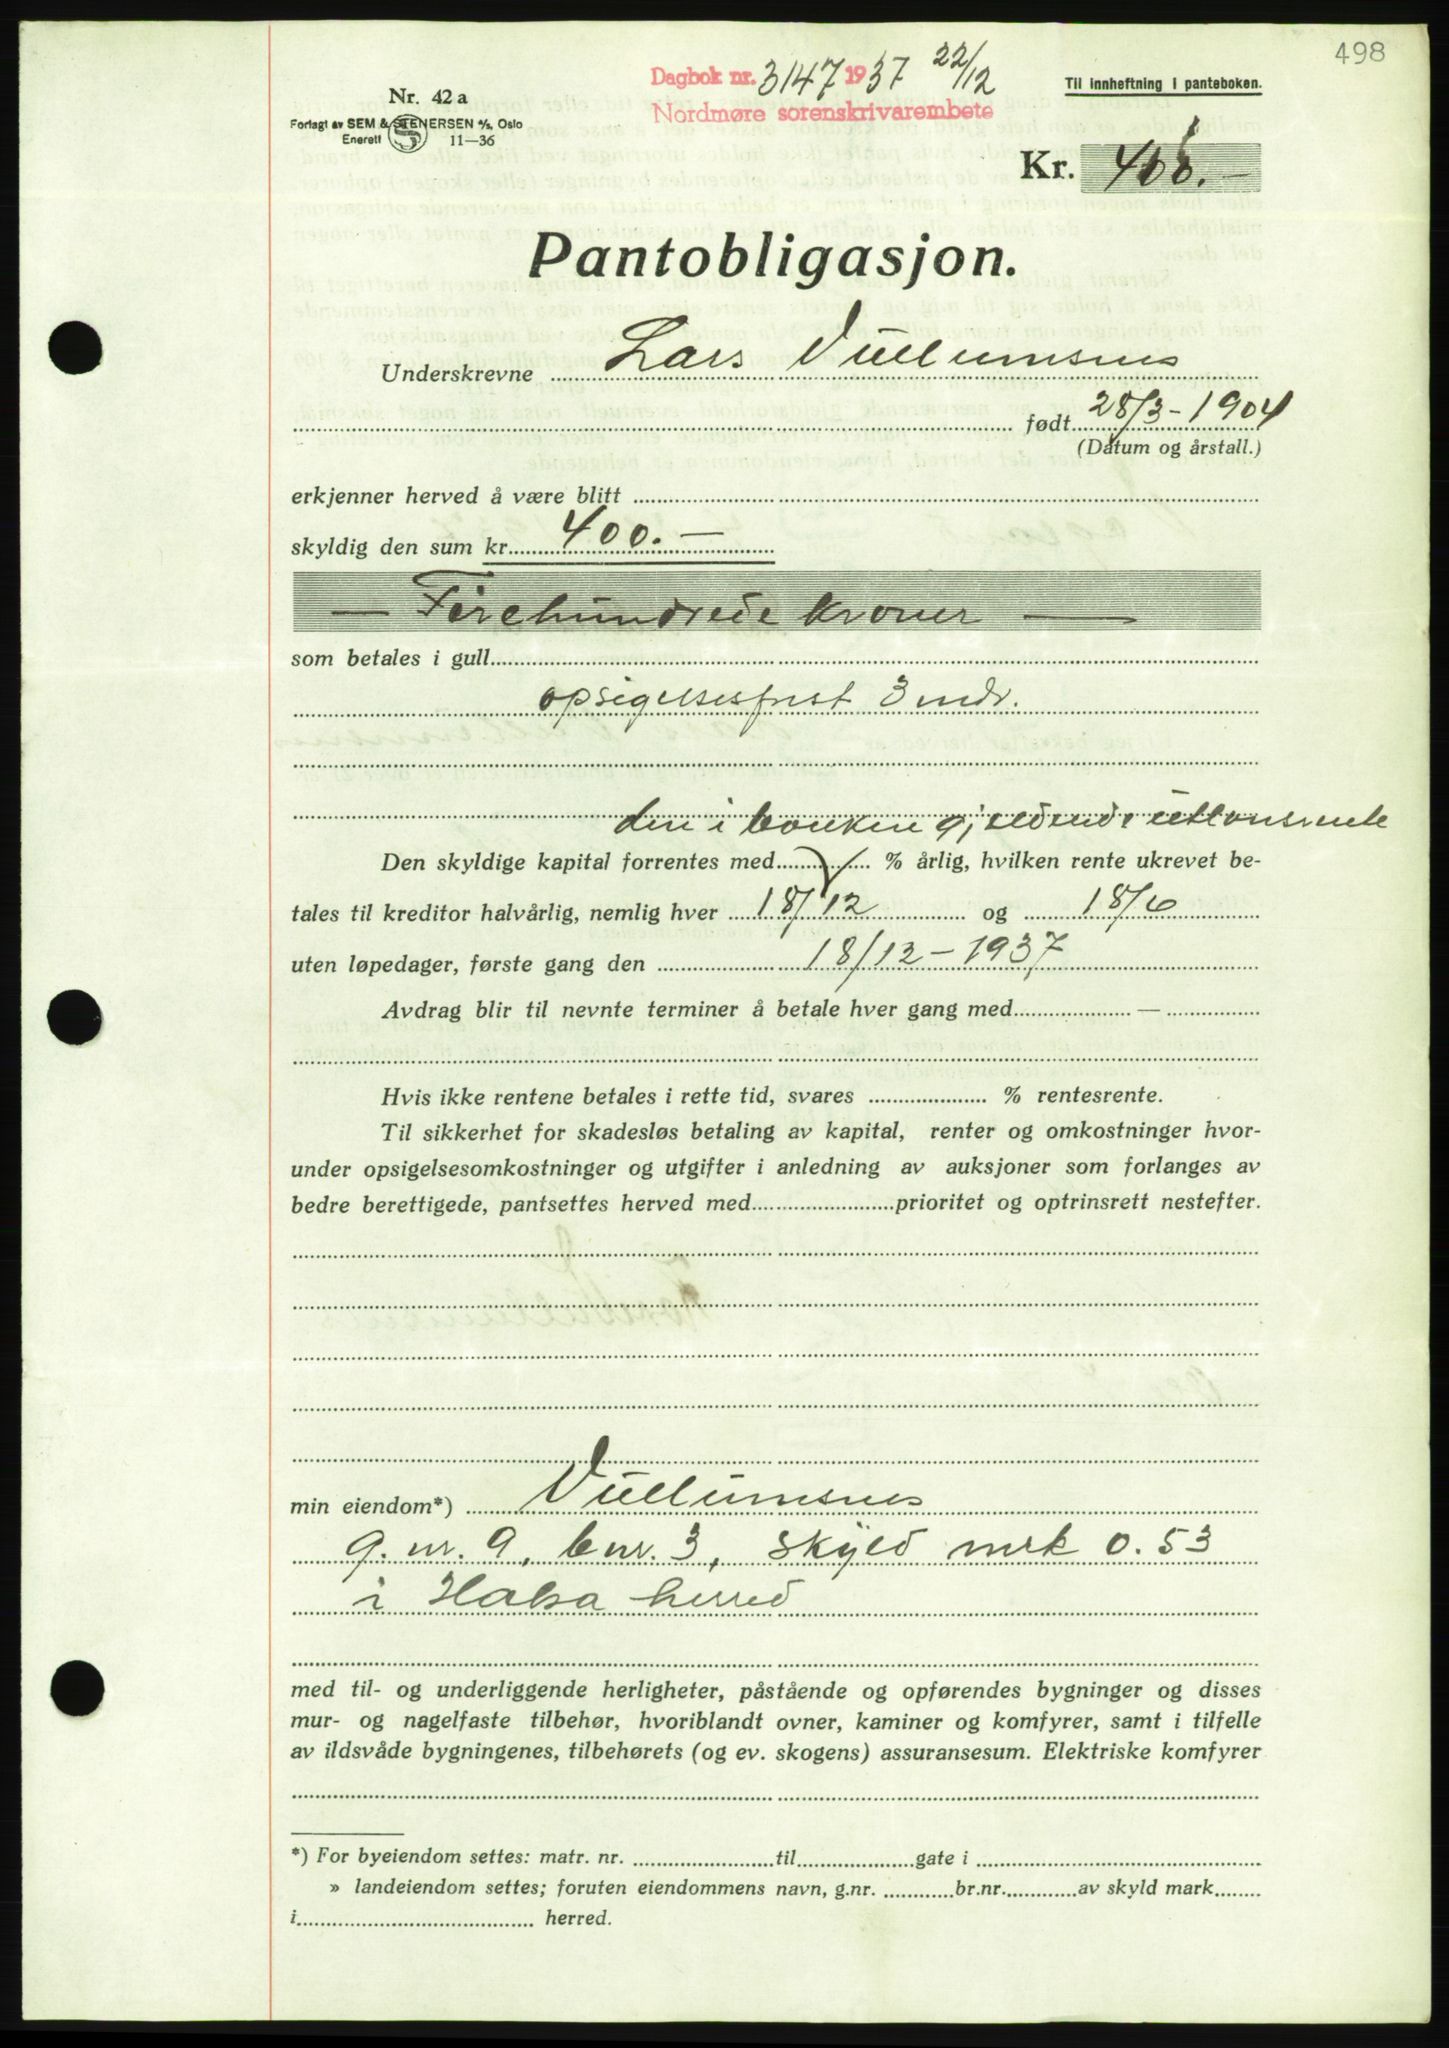 498
Dagbok nr. 3147 1937 22/12
Nordmøre sorenskrivarembete
Til innheftning i panteboken.
Nr. 42 a
Forlagt av SEM & STENERSEN A/S, Oslo
Enerett 11—36
Kr. 400.—
Pantobligasjon.
Underskrevne Lars Vullumsnes
født 28/3 - 1904
(Datum og årstall.)
erkjenner herved å være blitt
skyldig den sum kr. 400.—
— Firehundrede kroner —
som betales i gull
opsigelsesfrist 3 mdr.
den i banken gjeldende utlånsrente
Den skyldige kapital forrentes med % årlig, hvilken rente ukrevet be-
tales til kreditor halvårlig, nemlig hver 18/12 og 18/6
uten løpedager, første gang den 18/12 - 1937
Avdrag blir til nevnte terminer å betale hver gang med —
Hvis ikke rentene betales i rette tid, svares % rentesrente.
Til sikkerhet for skadesløs betaling av kapital, renter og omkostninger hvor-
under opsigelsesomkostninger og utgifter i anledning av auksjoner som forlanges av
bedre berettigede, pantsettes herved med prioritet og optrinsrett nestefter.
min eiendom*) Vullumsnes
g. nr. 9, bnr. 3, skyld mrk 0.53
i Halsa herred
med til- og underliggende herligheter, påstående og opførendes bygninger og disses
mur- og nagelfaste tilbehør, hvoriblandt ovner, kaminer og komfyrer, samt i tilfelle
av ildsvåde bygningenes, tilbehørets (og ev. skogens) assuransesum. Elektriske komfyrer
*) For byeiendom settes: matr. nr. til gate i
» landeiendom settes; foruten eiendommens navn, g.nr. br.nr. av skyld mark
i herred.